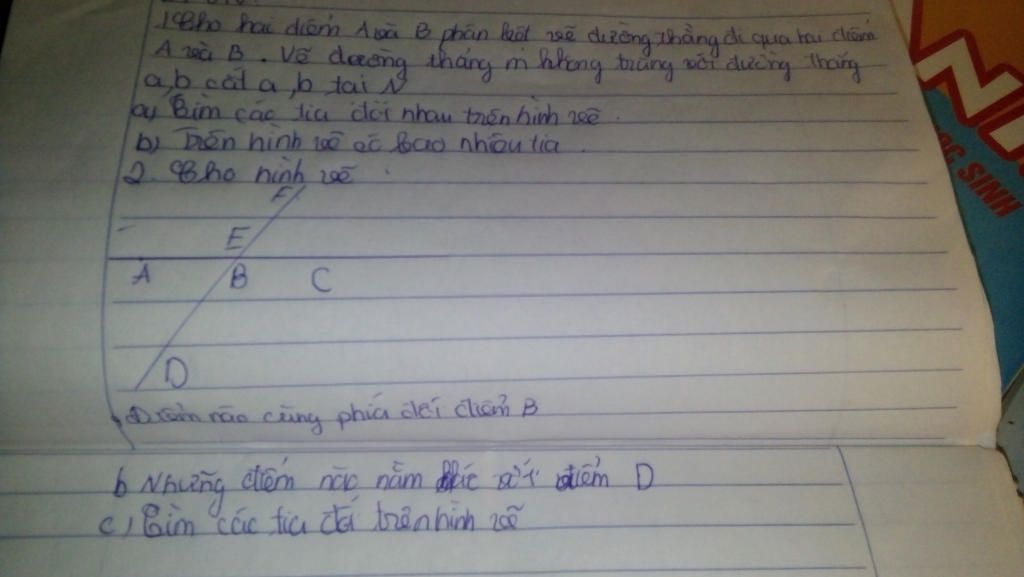 1. Cho hai điểm A và B phân biệt vẽ đường thẳng đi qua hai điểm
A và B. Vẽ đường thẳng m không trùng với đường thẳng
a, b cắt a, b tại N
a) Tìm các tia đối nhau trên hình vẽ.
b) Trên hình vẽ có bao nhiêu tia.
2. Cho hình vẽ
F
E
A B C
D
nào cùng phía đối điểm B
b Những điểm nào nằm với điểm D
c) Tìm các tia đối trên hình vẽ
SINH